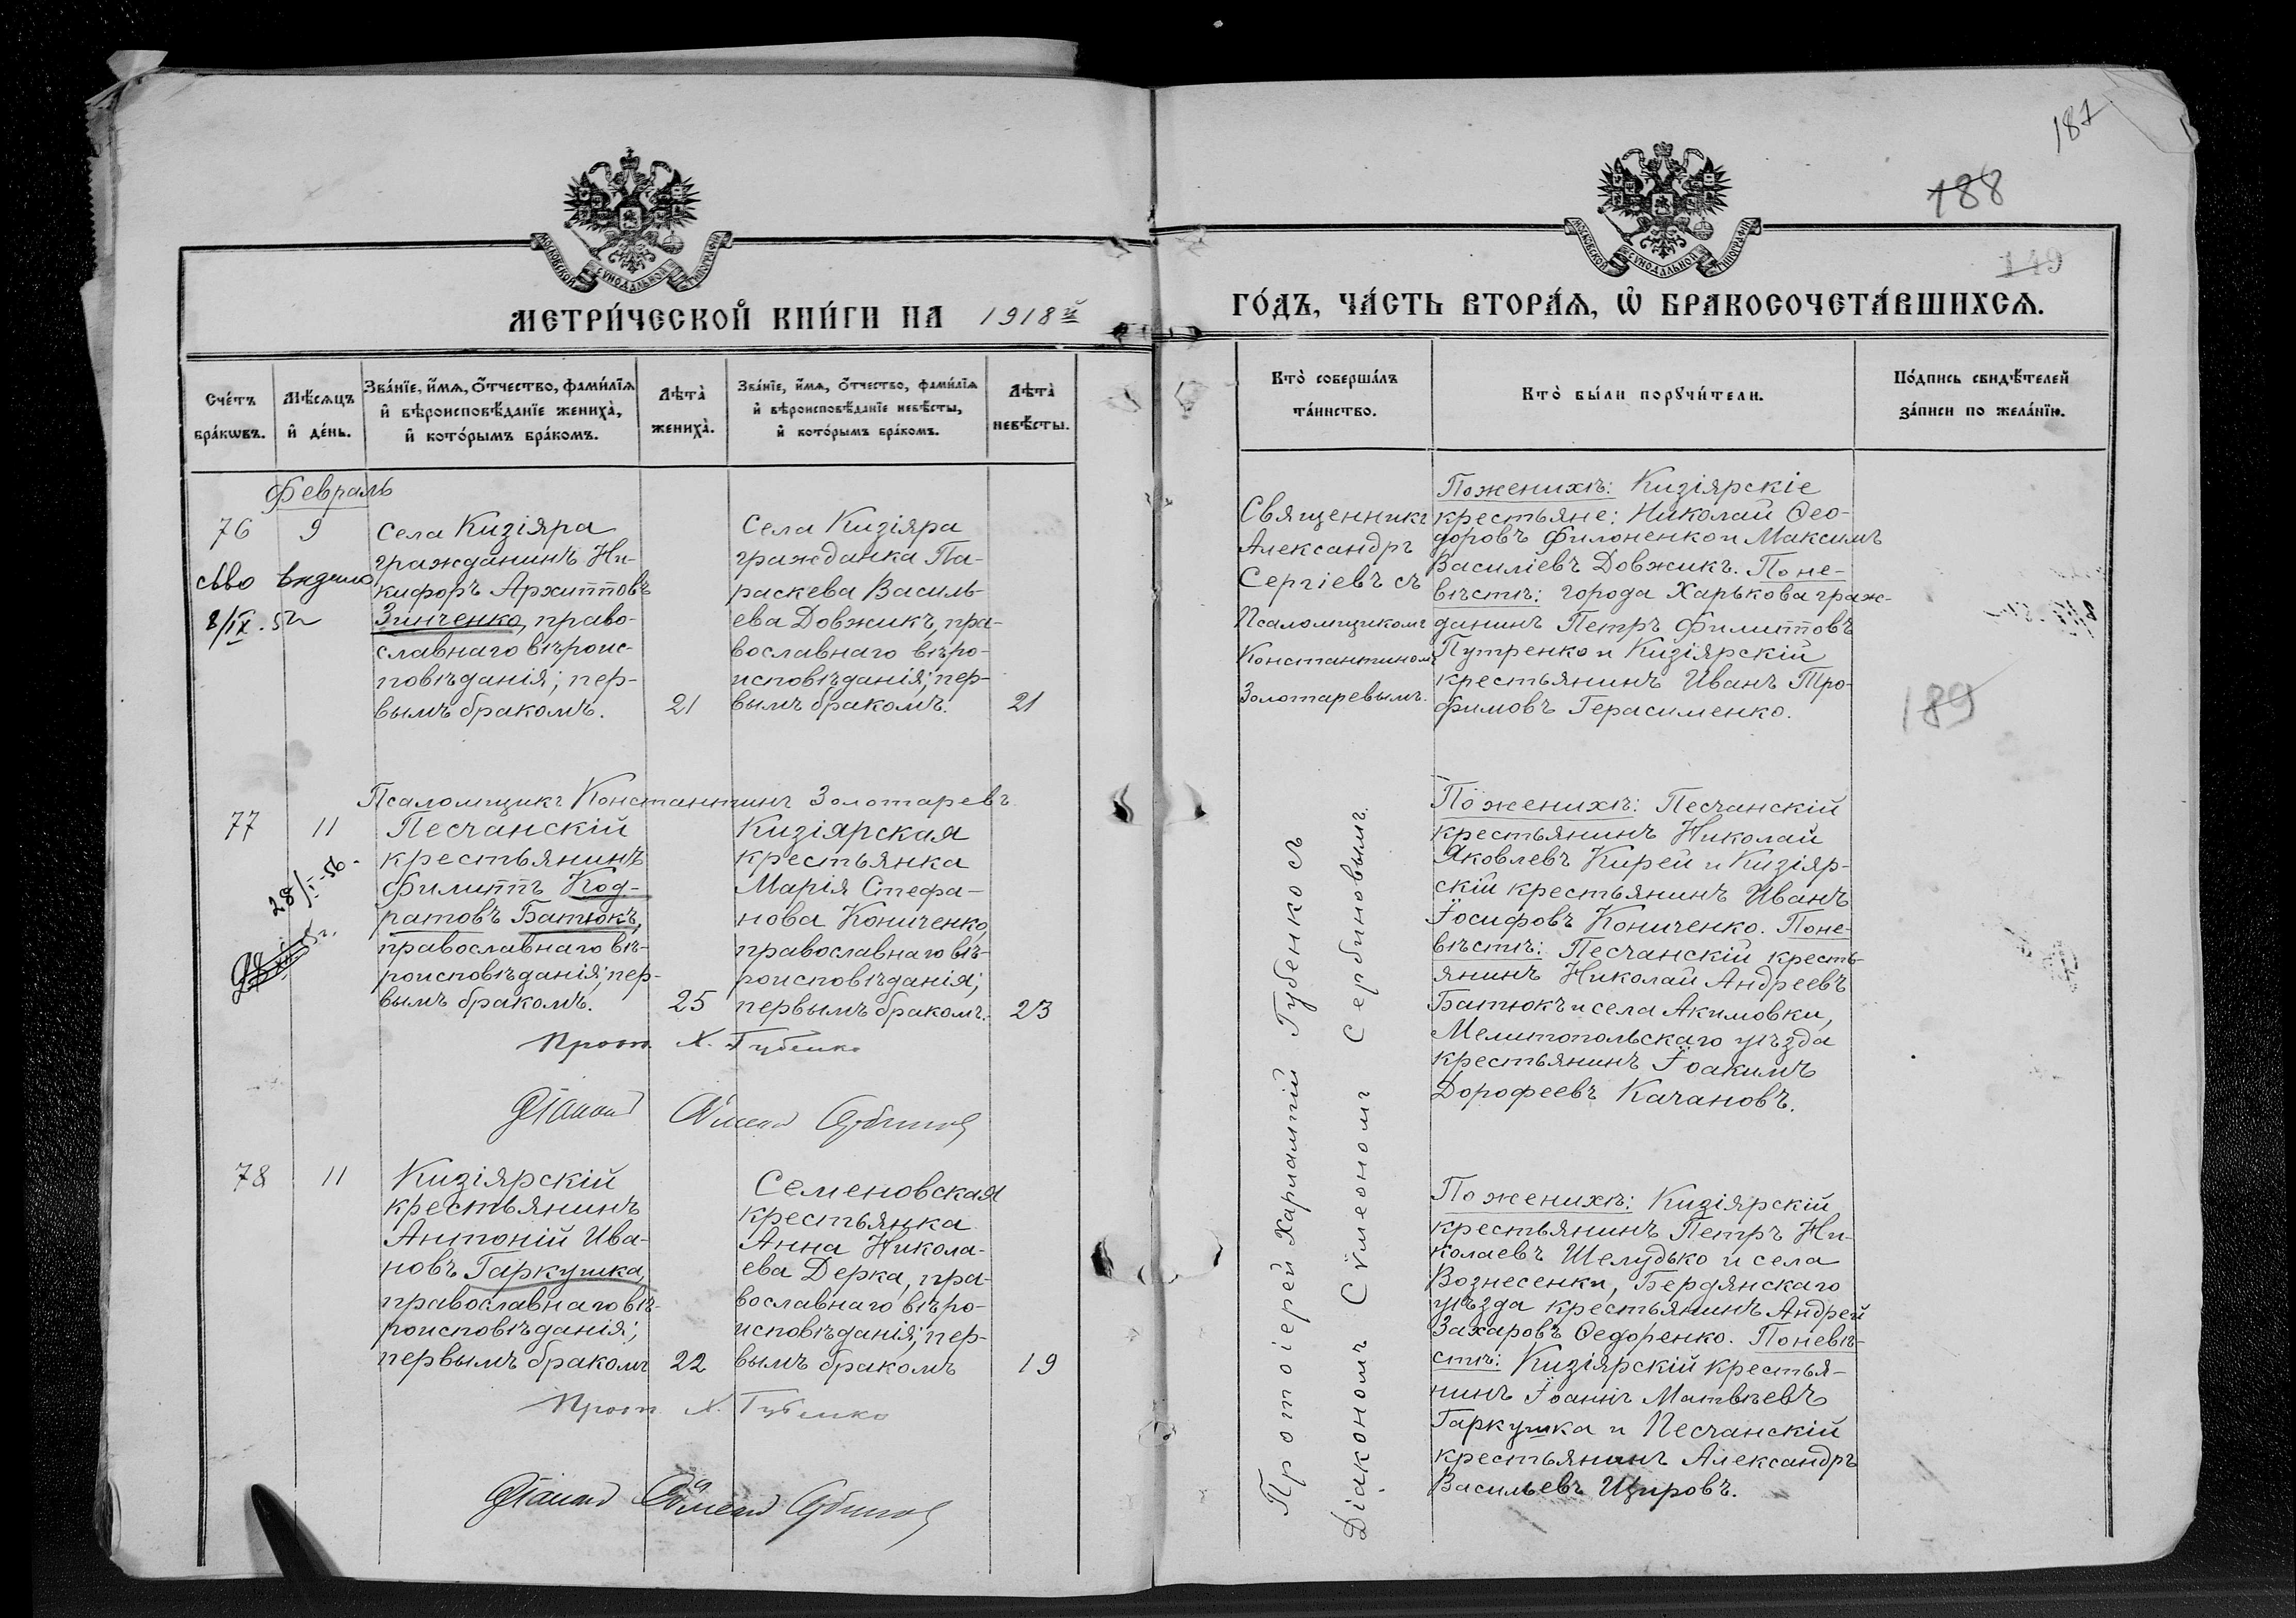 187
188
149
МОСКОВСКОЙ СѴНОДАЛЬНОЙ ТИПОГРАФІИ
МОСКОВСКОЙ СѴНОДАЛЬНОЙ ТИПОГРАФІИ
МЕТРИ́ЧЕСКОЙ КНИ́ГИ НА 1918й
ГО́ДЪ, ЧА́СТЬ ВТОРА́Ѧ, Ѿ БРАКОСОЧЕТА́ВШИХСѦ.
Сче́тъ бра́кѡвъ.
Мѣ́сѧцъ и҆ де́нь.
Зва́нїе, и҆́мѧ, ѻ҆́тчество, фами́лїѧ и҆ вѣроисповѣ́данїе жениха̀, и҆ кото́рымъ бра́комъ.
Лѣта̀ жениха̀.
Зва́нїе, и҆́мѧ, ѻ҆́тчество, фами́лїѧ и҆ вѣроисповѣ́данїе невѣ́сты, и҆ кото́рымъ бра́комъ.
Лѣта̀ невѣ́сты.
Кто̀ соверша́лъ та́инство.
Кто̀ бы́ли порꙋчи́тели.
По́дпись свидѣ́телей за́писи по жела́нїю.
Февраль
76
9
св-во выдано
8/IX.
Села Кизіяра
гражданинъ Ни-
кифоръ Архипповъ
Зинченко, право-
славнаго вѣроис-
повѣданія; пер-
вымъ бракомъ.
21
Села Кизіяра
гражданка Па-
раскева Василь-
ева Довжикъ, пра-
вославнаго вѣро-
исповѣданія; пер-
вымъ бракомъ.
21
Священникъ
Александръ
Сергіевъ съ
Псаломщикомъ
Константиномъ
Золотаревымъ.
По женихѣ: Кизіярскіе
крестьяне: Николай Ѳео-
доровъ Филоненко и Максимъ
Василіевъ Довжикъ. По не-
вѣстѣ: города Харькова граж-
данинъ Петръ Филипповъ
Путренко и Кизіярскій
крестьянинъ Иванъ Тро-
фимовъ Герасименко.
189
Псаломщикъ Константинъ Золотаревъ
77
11
28/I-56.
Песчанскій
крестьянинъ
Филиппъ Код-
ратовъ Батюкъ,
православнаго вѣ-
роисповѣданія; пер-
вымъ бракомъ.
25
Кизіярская
крестьянка
Марія Стефа-
нова Кониченко,
православнаго вѣ-
роисповѣданія;
первымъ бракомъ.
23
Прот. Х. Губенко
Діаконъ Сѵмеонъ Сербиновъ
По женихѣ: Песчанскій
крестьянинъ Николай
Яковлевъ Кирей и Кизіяр-
скій крестьянинъ Иванъ
Іосифовъ Кониченко. По не-
вѣстѣ: Песчанскій кресть-
янинъ Николай Андреевъ
Батюкъ и села Акимовки,
Мелитопольскаго уѣзда
крестьянинъ Іоакимъ
Дорофеевъ Качановъ.
Протоіерей Харлампій Губенко съ
Діакономъ Сѵмеономъ Сербиновымъ.
78
11
Кизіярскій
крестьянинъ
Антоній Ива-
новъ Гаркушка,
православнаго вѣ-
роисповѣданія;
первымъ бракомъ
22
Семеновская
крестьянка
Анна Никола-
ева Дерка, пра-
вославнаго вѣро-
исповѣданія; пер-
вымъ бракомъ
19
Прот. Х. Губенко
Діаконъ Сѵмеонъ Сербиновъ
По женихѣ: Кизіярскій
крестьянинъ Петръ Ни-
колаевъ Шелудько и села
Вознесенки, Бердянскаго
уѣзда крестьянинъ Андрей
Захаровъ Ѳедоренко. По невѣ-
стѣ: Кизіярскій крестья-
нинъ Іоаннъ Матвѣевъ
Гаркушка и Песчанскій
крестьянинъ Александръ
Васильевъ Щировъ.